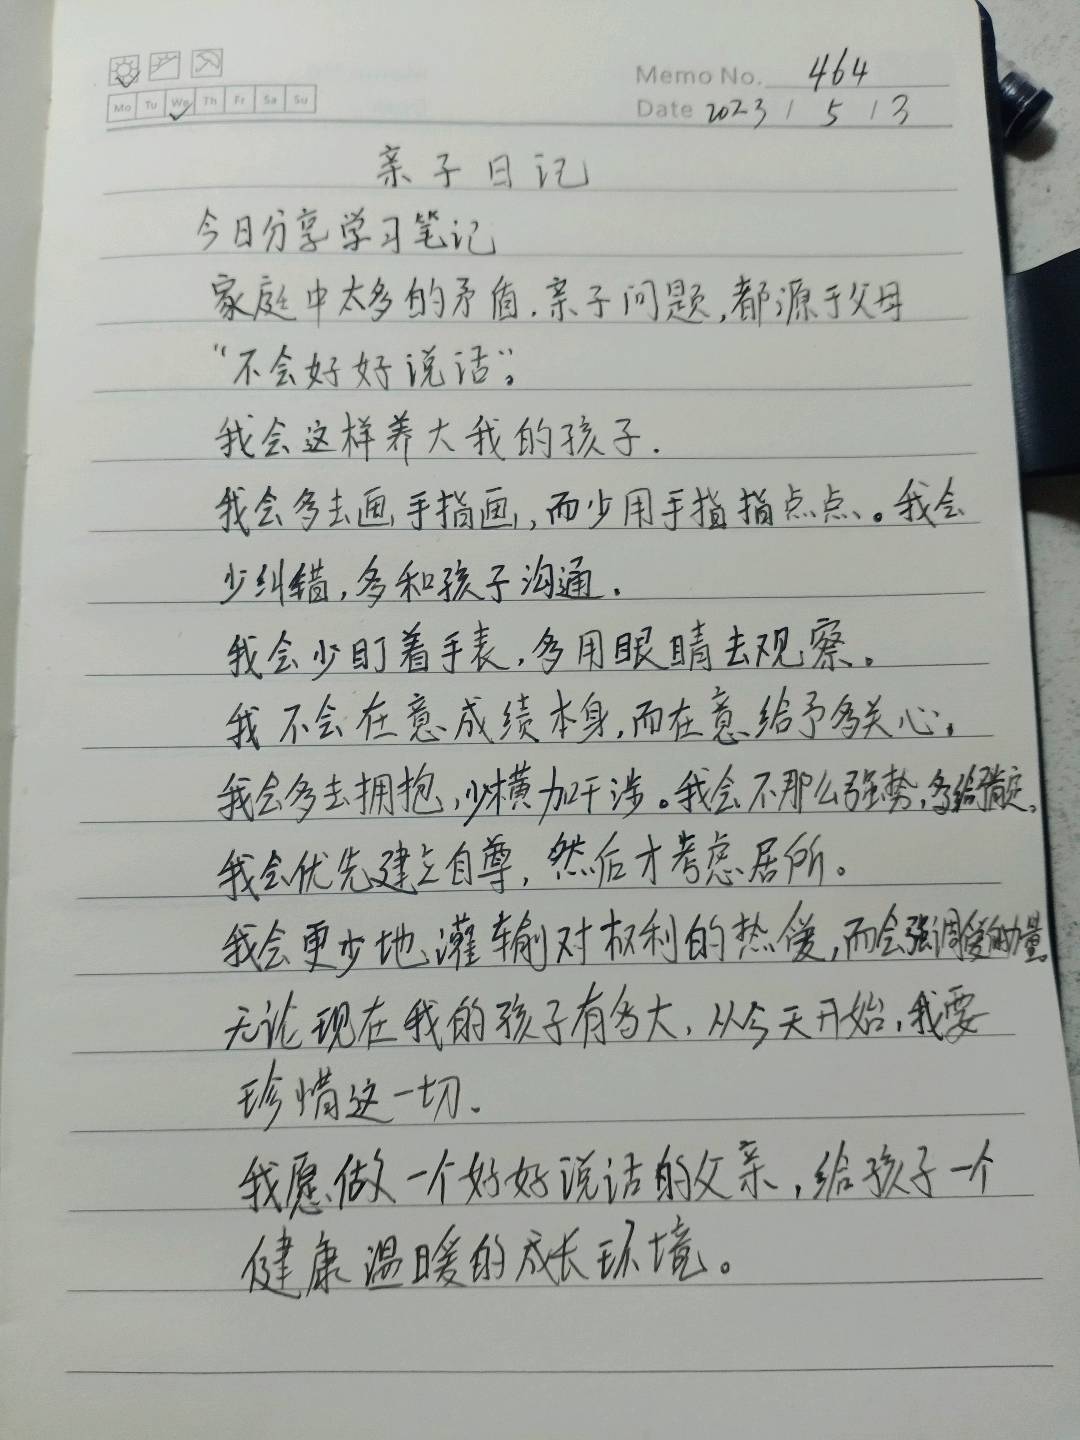 Memo No. 464
Mo Tu We Th Fr Sa Su
Date 2023 / 5 / 3
亲子日记
今日分享学习笔记
家庭中太多的矛盾.亲子问题,都源于父母
“不会好好说话”。
我会这样养大我的孩子.
我会多去画手指画,而少用手指指点点。我会
少纠错,多和孩子沟通.
我会少盯着手表,多用眼睛去观察。
我不会在意成绩本身,而在意给予多关心。
我会多去拥抱,少横加干涉。我会不那么强势,多给肯定。
我会优先建立自尊,然后才考虑居所。
我会更少地灌输对权利的热爱,而会强调爱的力量。
无论现在我的孩子有多大,从今天开始,我要
珍惜这一切.
我愿做一个好好说话的父亲,给孩子一个
健康温暖的成长环境。